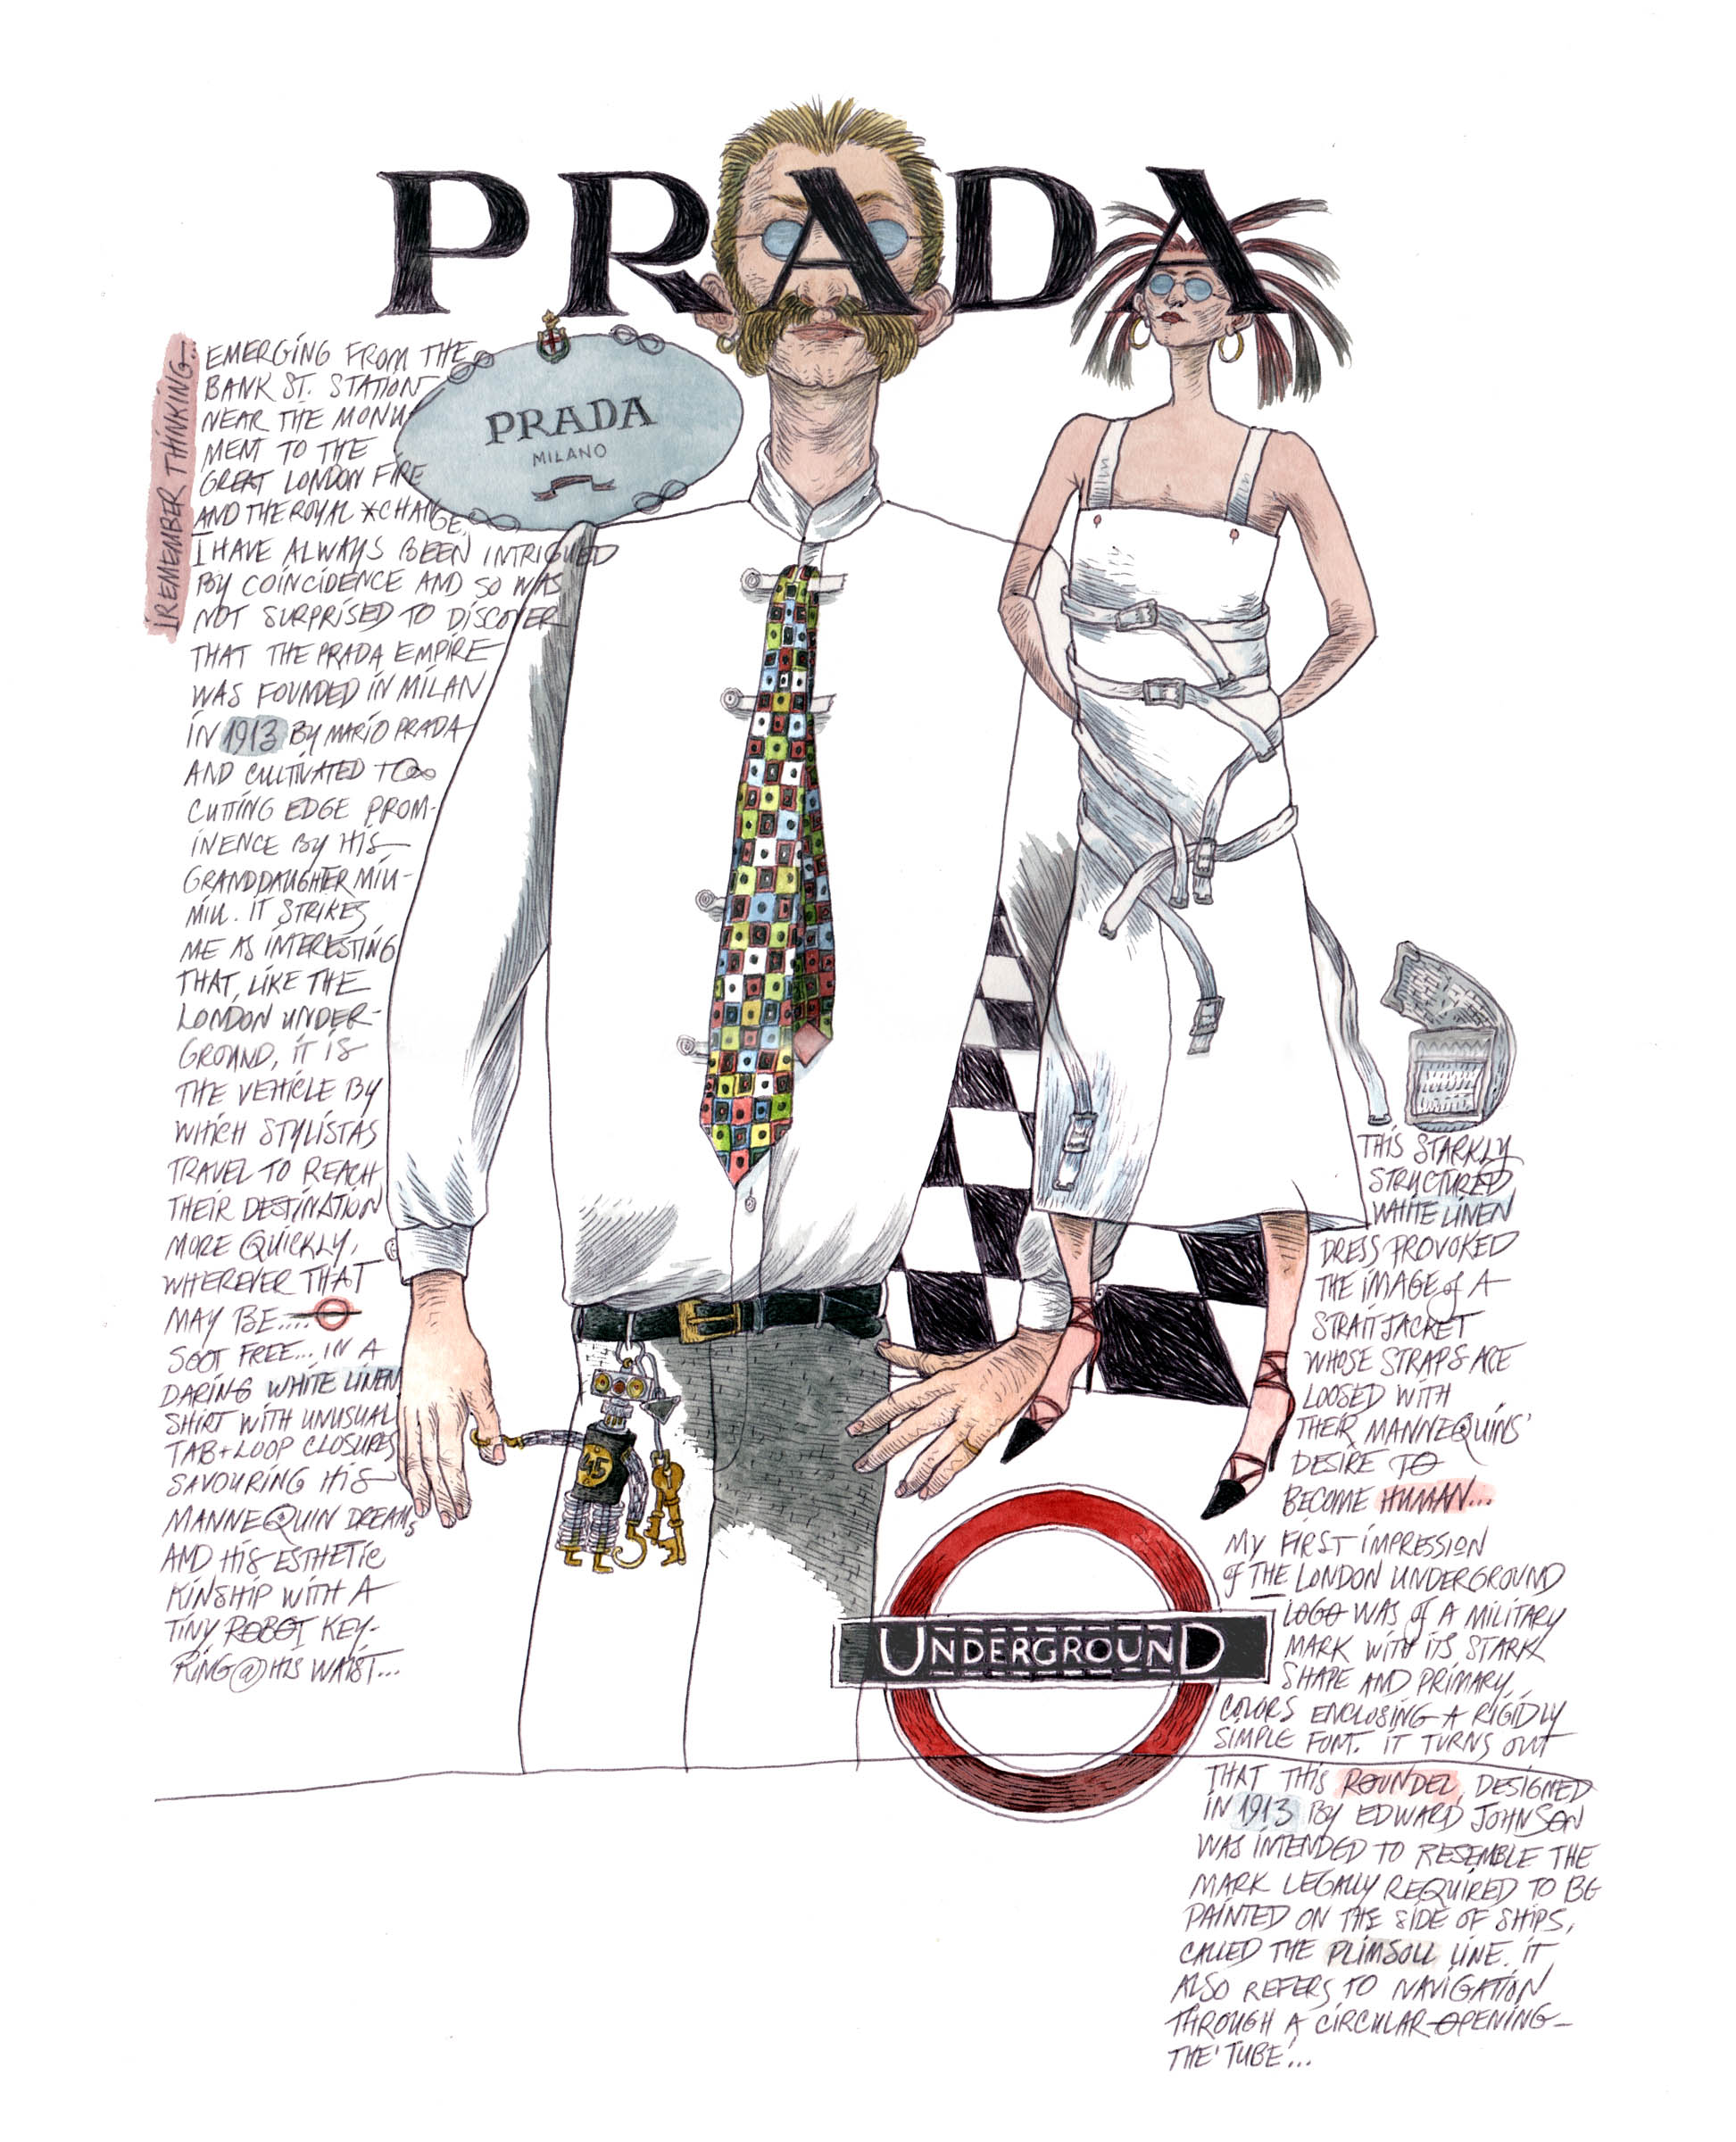 PRADA
PRADA
MILANO
I REMEMBER THINKING...
EMERGING FROM THE
BANK ST. STATION
NEAR THE MONU
MENT TO THE
GREAT LONDON FIRE
AND THE ROYAL *CHANGE,
I HAVE ALWAYS BEEN INTRIGUED
BY COINCIDENCE AND SO WAS
NOT SURPRISED TO DISCOVER
THAT THE PRADA EMPIRE
WAS FOUNDED IN MILAN
IN 1913 BY MARIO PRADA
AND CULTIVATED TO
CUTTING EDGE PROM-
INENCE BY HIS
GRANDDAUGHTER MIU-
MIU. IT STRIKES
ME AS INTERESTING
THAT, LIKE THE
LONDON UNDER-
GROUND, IT IS
THE VEHICLE BY
WHICH STYLISTAS
TRAVEL TO REACH
THEIR DESTINATION
MORE QUICKLY,
WHEREVER THAT
MAY BE....
SOOT FREE... IN A
DARING WHITE LINEN
SHIRT WITH UNUSUAL
TAB+LOOP CLOSURES
SAVOURING HIS
MANNEQUIN DREAMS
AND HIS ESTHETIC
KINSHIP WITH A
TINY ROBOT KEY-
RING @ HIS WAIST...
45
THIS STARKLY
STRUCTURED
WHITE LINEN
DRESS PROVOKED
THE IMAGE of A
STRAITJACKET
WHOSE STRAPS ARE
LOOSED WITH
THEIR MANNEQUINS'
DESIRE TO
BECOME HUMAN...
UNDERGROUND
MY FIRST IMPRESSION
of THE LONDON UNDERGROUND
LOGO WAS of A MILITARY
MARK WITH ITS STARK
SHAPE AND PRIMARY
COLORS ENCLOSING A RIGIDLY
SIMPLE FONT. IT TURNS OUT
THAT THIS ROUNDEL, DESIGNED
IN 1913 BY EDWARD JOHNSON
WAS INTENDED TO RESEMBLE THE
MARK LEGALLY REQUIRED TO BE
PAINTED ON THE SIDE OF SHIPS,
CALLED THE PLIMSOLL LINE. IT
ALSO REFERS TO NAVIGATION
THROUGH A CIRCULAR OPENING-
THE 'TUBE'...